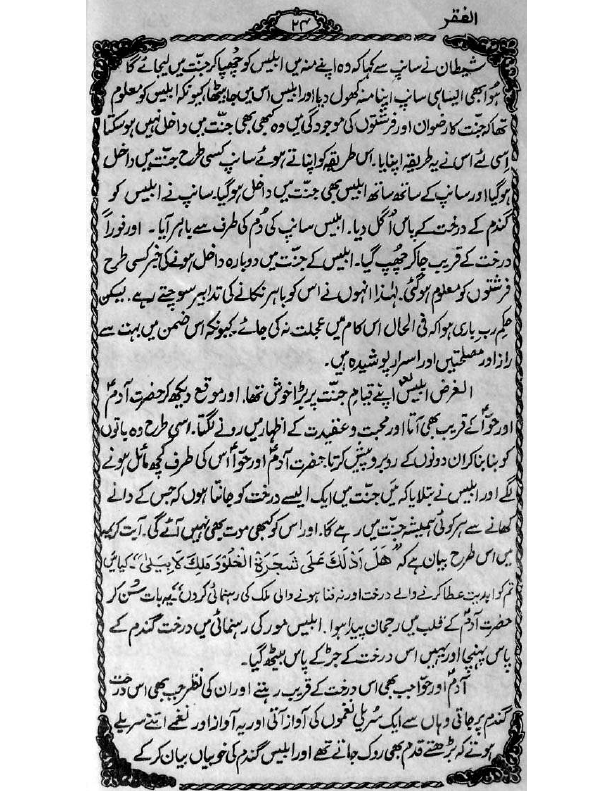 الفقر
۲۴
شیطان نے سانپ سے کہا کہ وہ اپنے منہ میں ابلیس کو چھپا کر جنّت میں لیجائے گا
ہوا بھی ایسا ہی سانپ اپنا منہ کھول دیا اور ابلیس اس میں جا بیٹھا کیونکہ ابلیس کو معلوم
تھا کہ جنّت کا رضوان اور فرشتوں کی موجودگی میں وہ کبھی بھی جنّت میں داخل نہیں ہوسکتا
اِسی لئے اس نے یہ طریقہ اپنایا۔ اس طریقہ کو اپناتے ہوئے سانپ کسی طرح جنّت میں داخل
ہوگیا اور سانپ کے ساتھ ساتھ ابلیس بھی جنّت میں داخل ہوگیا۔ سانپ نے ابلیس کو
گندم کے درخت کے پاس اُگل دیا۔ ابلیس سانپ کی دُم کی طرف سے باہر آیا۔ اور فوراً
درخت کے قریب جا کر چھپ گیا۔ ابلیس کے جنّت میں دوبارہ داخل ہونے کی خبر کسی طرح
فرشتوں کو معلوم ہوگئی۔ لہٰذا انہوں نے اس کو باہر نکالنے کی تدابیر سوچتے رہے۔ لیکن
حکم ربِ باری ہوا کہ فی الحال اس کام میں عجلت نہ کی جائے کیونکہ اس ضمن میں بہت سے
راز اور مصلحتیں اور اسرار پوشیدہ ہیں۔
الغرض ابلیس اپنے قیامِ جنّت پر بڑا خوش تھا، اور موقع دیکھ کر حضرت آدمؑ
اور حوّاؑ کے قریب بھی آتا اور محبت و عقیدت کے اظہار میں رونے لگتا۔ اسی طرح وہ باتوں
کو بنا بنا کر ان دونوں کے روبرو پیش کرتا، حضرت آدمؑ اور حوّاؑ اس کی طرف کچھ مائل ہونے
لگے اور ابلیس نے بتلایا کہ میں جنّت میں ایک ایسے درخت کو جانتا ہوں کہ جس کے دانے
کھانے سے ہر کوئی ہمیشہ جنّت میں رہے گا۔ اور اس کو کبھی موت بھی نہیں آئے گی۔ آیت کریمہ
میں اس طرح بیان ہے کہ "هَلْ اَدُلُّكَ عَلٰى شَجَرَةِ الْخُلْدِ وَمُلْكٍ لَا يَبْلٰى" کیا میں
تم کو ابدیت عطا کرنے والے درخت اور نہ فنا ہونے والی ملک کی رہنمائی کردوں" یہ بات سُن کر
حضرت آدمؑ کے قلب میں رجحان پیدا ہوا۔ ابلیس مور کی رہنمائی میں درخت گندم کے
پاس پہنچا اور یہیں اس درخت کے جڑ کے پاس بیٹھ گیا۔
آدمؑ اور حوّا جب بھی اس درخت کے قریب رہتے اور ان کی نظر جب بھی اس درخت
گندم پر جاتی وہاں سے ایک سُریلی نغموں کی آواز آتی اور یہ آواز اور نغمے اتنے سریلے
ہوتے کہ بڑھتے قدم بھی روک جاتے تھے اور ابلیس گندم کی خوبیاں بیان کر کے